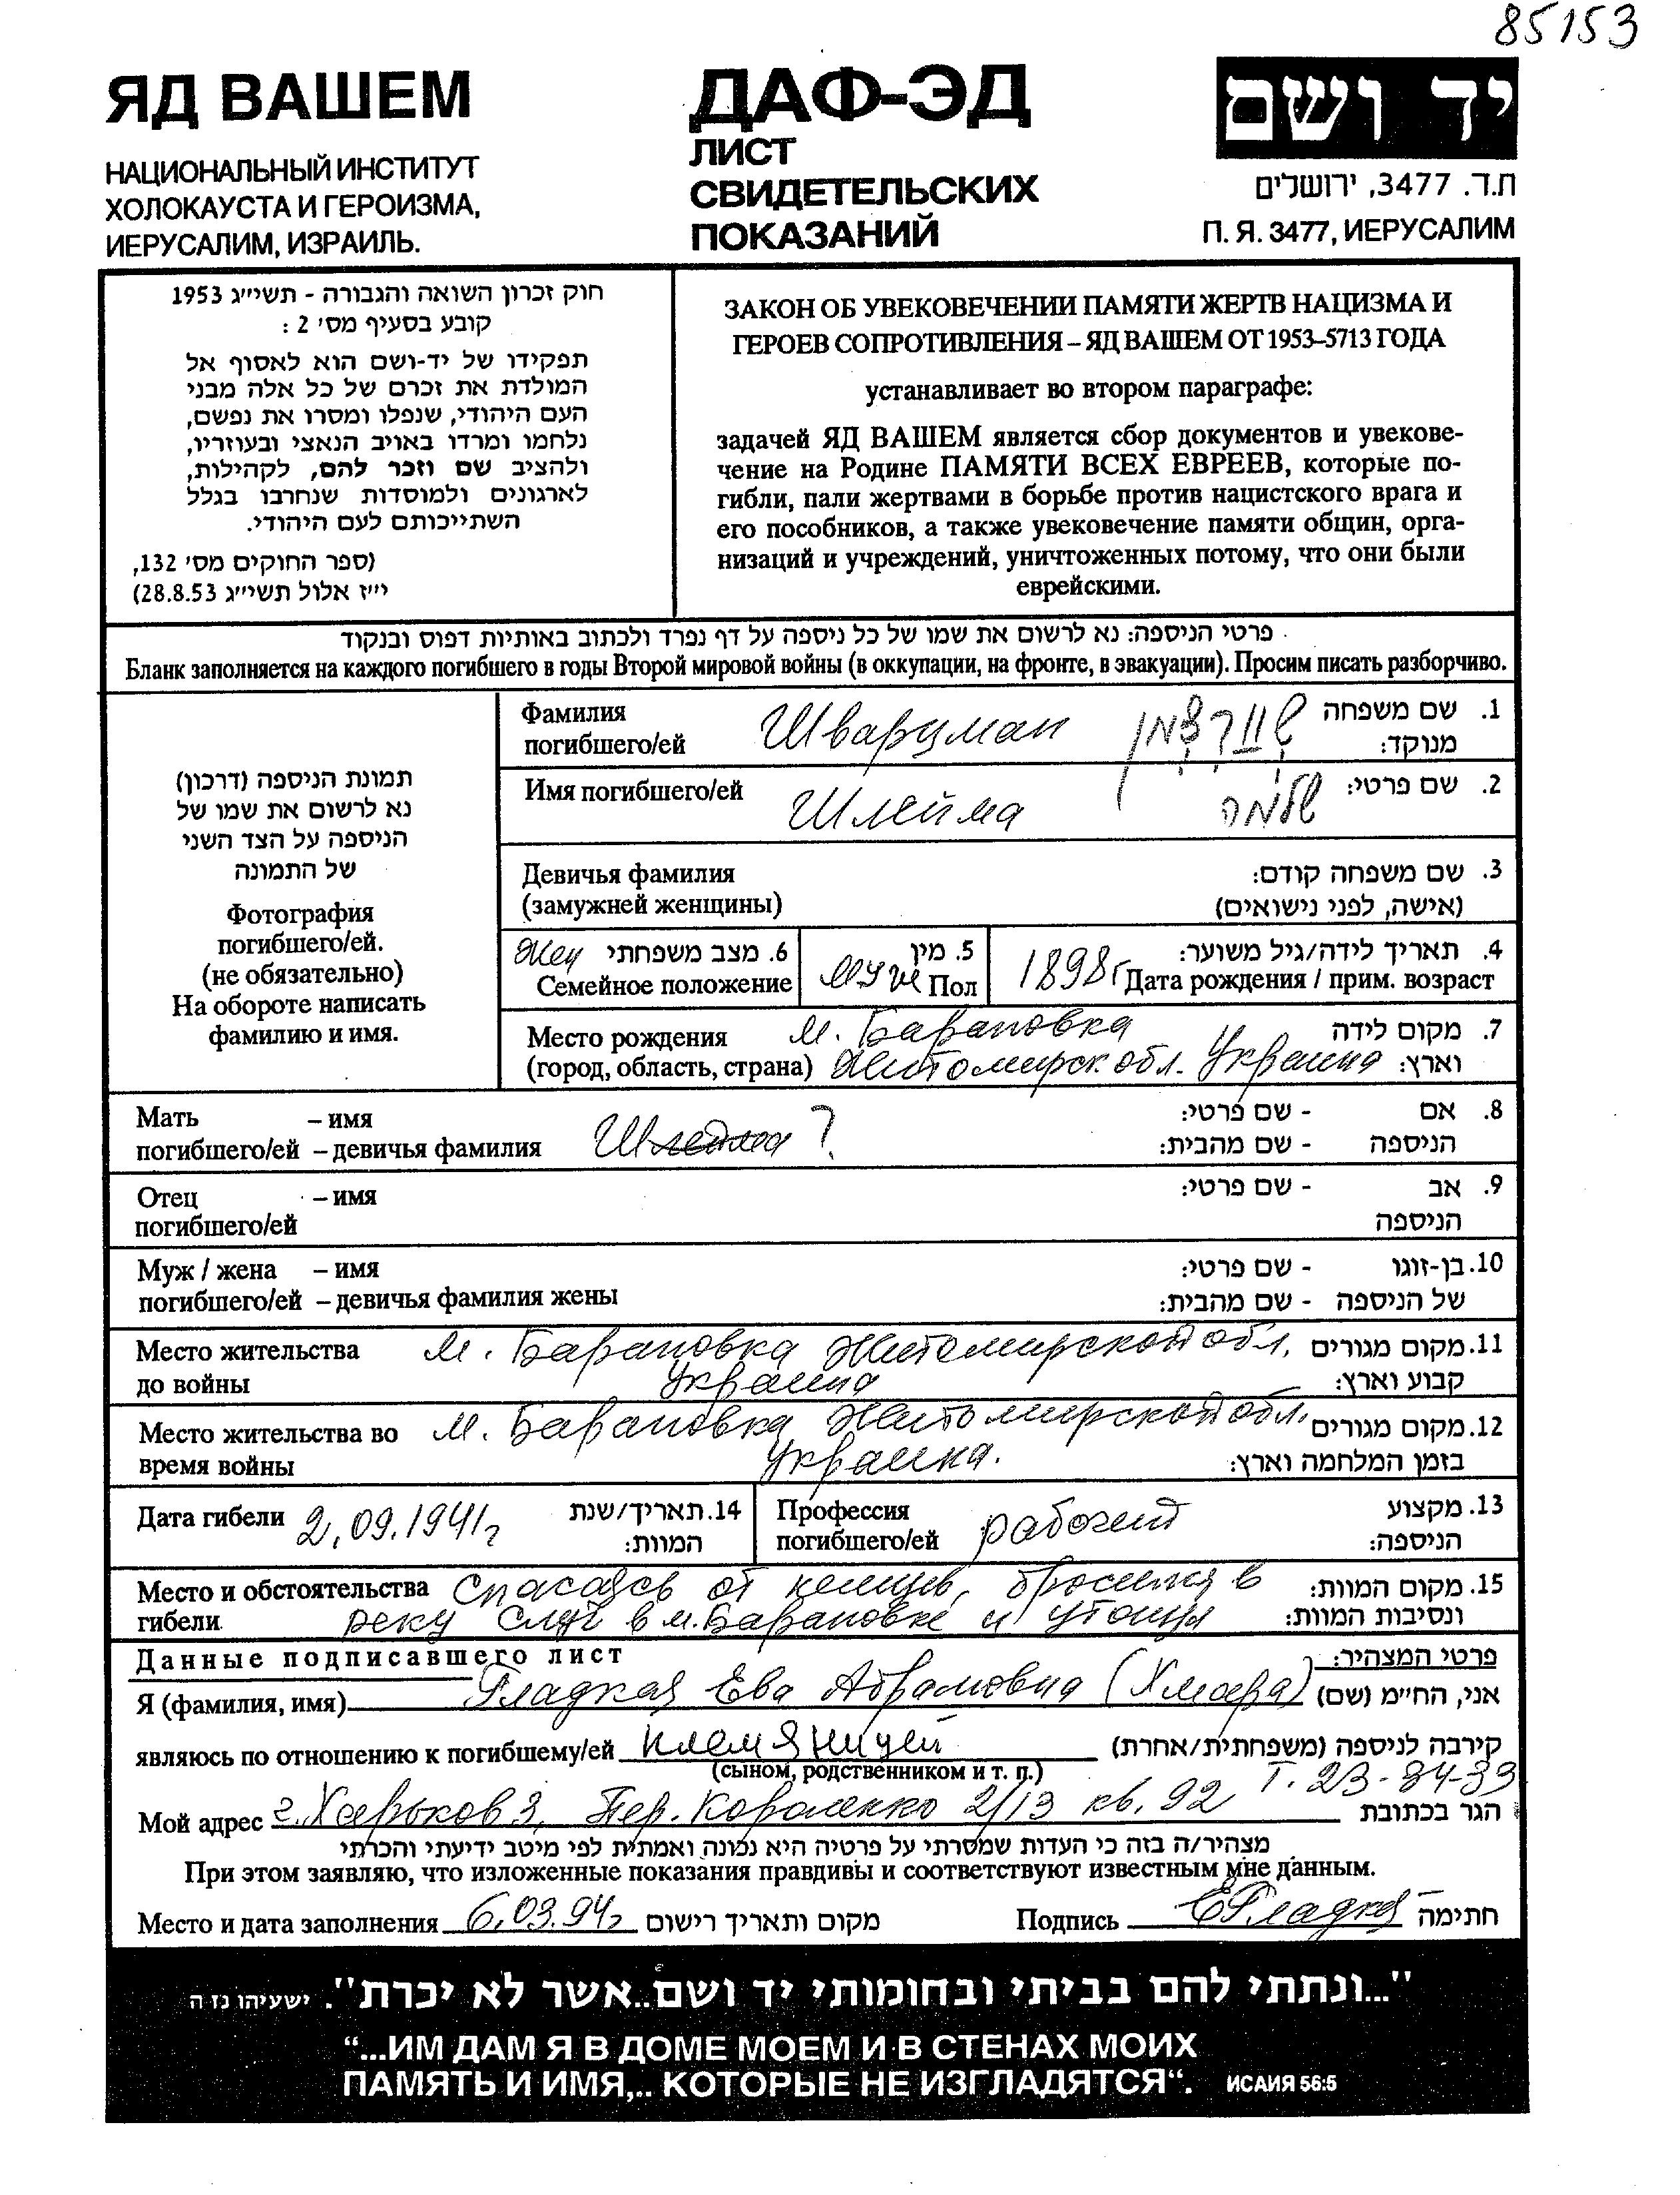 85153
ЯД ВАШЕМ
НАЦИОНАЛЬНЫЙ ИНСТИТУТ
ХОЛОКАУСТА И ГЕРОИЗМА,
ИЕРУСАЛИМ, ИЗРАИЛЬ.
ДАФ-ЭД
ЛИСТ
СВИДЕТЕЛЬСКИХ
ПОКАЗАНИЙ
יד ושם
ת.ד. 3477, ירושלים
П. Я. 3477, ИЕРУСАЛИМ
חוק זכרון השואה והגבורה - תשי״ג 1953
קובע בסעיף מס׳ 2 :
תפקידו של יד-ושם הוא לאסוף אל
המולדת את זכרם של כל אלה מבני
העם היהודי, שנפלו ומסרו את נפשם,
נלחמו ומרדו באויב הנאצי ובעוזריו,
ולהציב שם וזכר להם, לקהילות,
לארגונים ולמוסדות שנחרבו בגלל
השתייכותם לעם היהודי.
(ספר החוקים מס׳ 132,
י״ז אלול תשי״ג 28.8.53)
ЗАКОН ОБ УВЕКОВЕЧЕНИИ ПАМЯТИ ЖЕРТВ НАЦИЗМА И
ГЕРОЕВ СОПРОТИВЛЕНИЯ – ЯД ВАШЕМ ОТ 1953–5713 ГОДА
устанавливает во втором параграфе:
задачей ЯД ВАШЕМ является сбор документов и увекове-
чение на Родине ПАМЯТИ ВСЕХ ЕВРЕЕВ, которые по-
гибли, пали жертвами в борьбе против нацистского врага и
его пособников, а также увековечение памяти общин, орга-
низаций и учреждений, уничтоженных потому, что они были
еврейскими.
פרטי הניספה: נא לרשום את שמו של כל ניספה על דף נפרד ולכתוב באותיות דפוס ובנקוד
Бланк заполняется на каждого погибшего в годы Второй мировой войны (в оккупации, на фронте, в эвакуации). Просим писать разборчиво.
תמונת הניספה (דרכון)
נא לרשום את שמו של
הניספה על הצד השני
של התמונה
Фотография
погибшего/ей.
(не обязательно)
На обороте написать
фамилию и имя.
Фамилия Шварцман שוורצמן 1. שם משפחה
погибшего/ей מנוקד:
Имя погибшего/ей Шлейма שלמה 2. שם פרטי:
Девичья фамилия 3. שם משפחה קודם:
(замужней женщины) (אישה, לפני נישואים)
Жен 6. מצב משפחתי 5. מין 4. תאריך לידה/גיל משוער:
Семейное положение муж Пол 1898г Дата рождения / прим. возраст
Место рождения м. Барановка 7. מקום לידה
(город, область, страна) Житомирск. обл. Украина וארץ:
Мать – имя - שם פרטי: 8. אם
погибшего/ей – девичья фамилия Шлейма ? - שם מהבית: הניספה
Отец – имя - שם פרטי: 9. אב
погибшего/ей הניספה
Муж / жена – имя - שם פרטי: 10. בן-זוגו
погибшего/ей – девичья фамилия жены - שם מהבית: של הניספה
Место жительства м. Барановка Житомирской обл. 11. מקום מגורים
до войны Украина קבוע וארץ:
Место жительства во м. Барановка Житомирской обл. 12. מקום מגורים
время войны Украина. בזמן המלחמה וארץ:
Дата гибели 2.09.1941г 14. תאריך/שנת
המוות:
Профессия рабочий 13. מקצוע
погибшего/ей הניספה:
Место и обстоятельства Спасаясь от немцев, бросился в 15. מקום המוות:
гибели реку Случ в м. Барановке и утонул ונסיבות המוות:
Данные подписавшего лист פרטי המצהיר:
Я (фамилия, имя) Гладкая Ева Абрамовна (Хмара) אני, הח״מ (שם)
являюсь по отношению к погибшему/ей племянницей קירבה לניספה (משפחתית/אחרת)
(сыном, родственником и т. п.)
Мой адрес г. Харьков 3, Пер. Короленко 2/13 кв. 92 Т. 23-34-33 הגר בכתובת
מצהיר/ה בזה כי העדות שמסרתי על פרטיה היא נכונה ואמתית לפי מיטב ידיעתי והכרתי
При этом заявляю, что изложенные показания правдивы и соответствуют известным мне данным.
Место и дата заполнения 6.03.94г מקום ותאריך רישום Подпись ЕГладкая חתימה
"...ונתתי להם בביתי ובחומותי יד ושם..אשר לא יכרת". ישעיהו נז ה
“...ИМ ДАМ Я В ДОМЕ МОЕМ И В СТЕНАХ МОИХ
ПАМЯТЬ И ИМЯ,.. КОТОРЫЕ НЕ ИЗГЛАДЯТСЯ“. ИСАИЯ 56:5